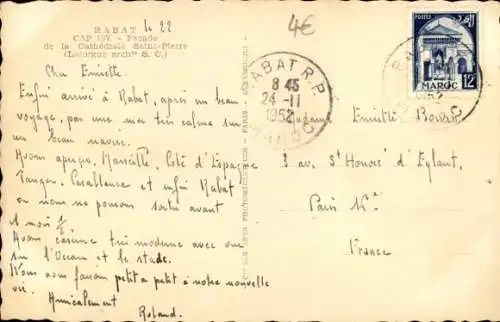 RABAT
le 22
CAP 187 - Façade
de la Cathédrale Saint-Pierre
(Laforgue archte S. C.)
4€
Cher Emirette
Enfin arrivé à Rabat, après un beau
voyage, par une mer très calme sur
un beau navire.
Avons aperçu, Marseille, Côte d'Espagne
Tanger, Casablanca et enfin Rabat
ou nous ne pouvons sortir avant
1 mois ½
Avons caserne très moderne avec vue
sur l'Océan et le stade.
Nous nous faisons petit à petit à notre nouvelle
vie.
Amicalement
Roland.
RABAT R.P
8 45
24-11
1952
MAROC
POSTES
MAROC
12F
Madame
3 av. St Honoré d'Eylant,
Paris
France